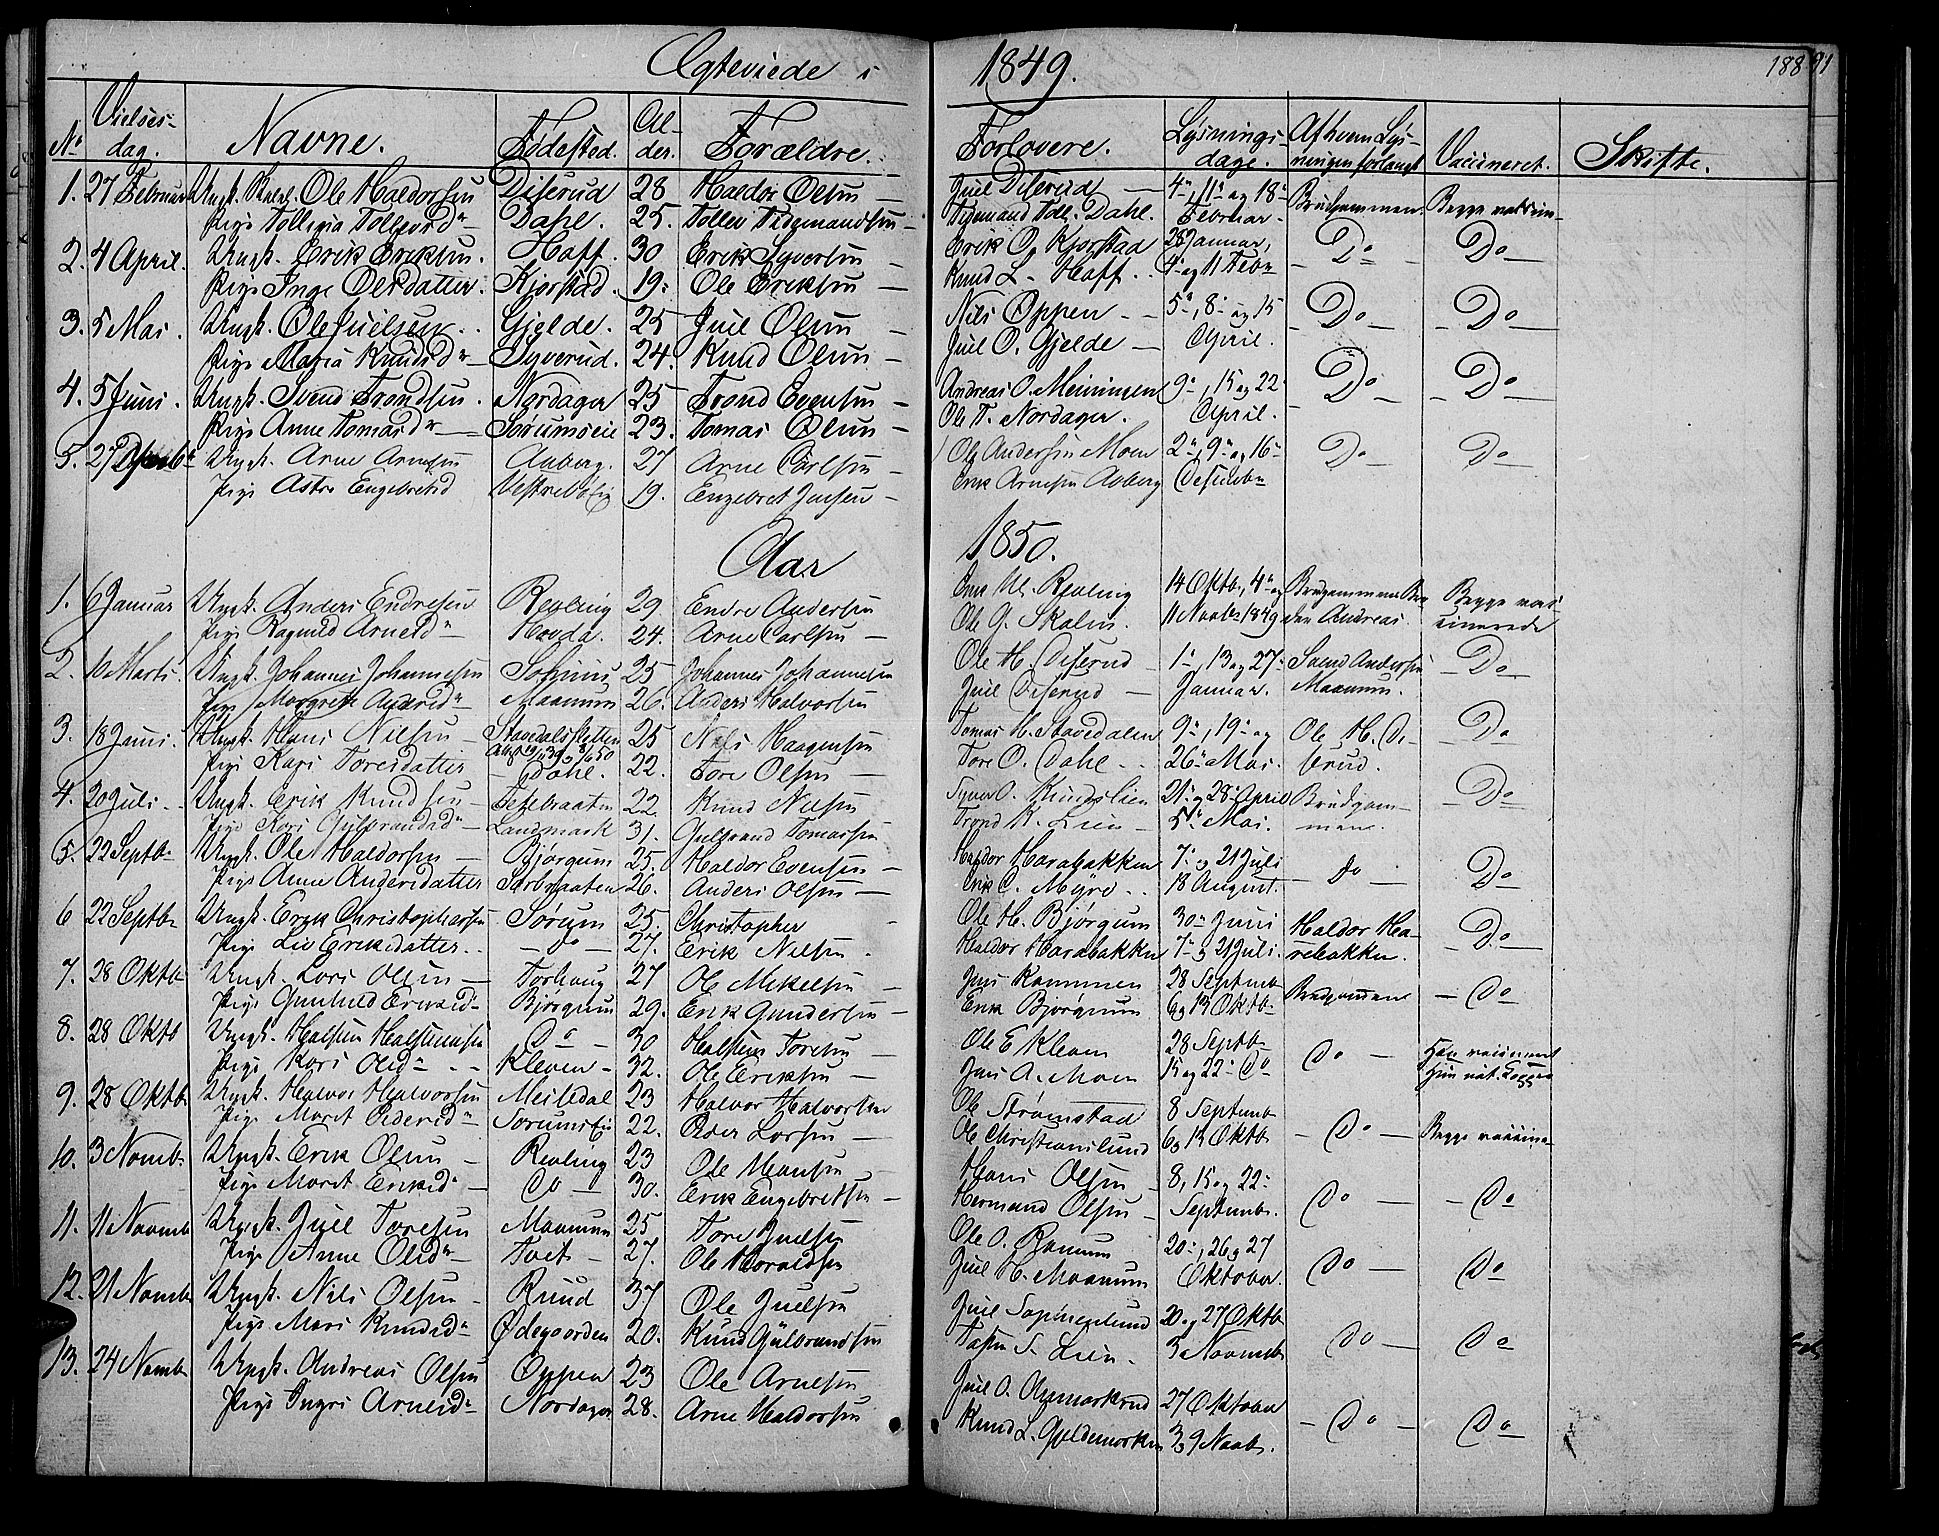 Ægteviede i 1849.
188 91
No Vielses-dag. Navne. Fødested. Al-der. Forældre. Forlovere. Lysnings-dage. Af hvem Lys-ningen forlangt Vaccineret. Skifte.
1. 27 Februar Ungk. Ole Haldorsen Diserud 28 Haldor Olsen — Juel Diserud — 4de, 11te og 18de Brudgommen. Begge vaccine-
Pige Tolline Tollefsd Dahl. 25. Tollev Tidemandsen — Tidemand Toll. Dahl. Februar.
2. 4 April. Ungk. Erik Eriksen. Hoff. 30 Erik Syversen — Erik O. Kjorstad 28 Januar, — Do — Do —
Pige Inge Olesdatter. Kjorstad. 19. Ole Eriksen — Knud L. Hoff. 4de og 11 Febr
3. 5 Mai. Ungk. Ole Juelsen. Gjelde. 25 Juel Olsen — Nils Oppen — 5te, 8de og 15 — Do — — Do —
Pige Maria Knudsdr — Syverud. 24. Knud Olsen — Juel O. Gjelde — April.
4. 5 Juni. Ungk. Svend Trondsen. Nordager 25 Trond Evensen — Andreas O. Meiningen 9de, 15 og 22 — Do — — Do —
Pige Anne Tomasdr — Sorumseie 23. Tomas Olsen — Ole T. Nordager. April.
5. 27 Ungk. Arne Arnesen Aaberg. 27 Arne Carlsen — Ole Andersen Moen 2den, 9de og 16de Do — Do —
Pige Astri Engebretsd 19. Engebret Jensen — Erik Arnesen Aaberg Desember
Aar 1850.
1. 6 Januar Ungk. Anders Endresen Revling 29. Endre Andersen Revling 14 Oktb, 4de og Brudgommens Bro- Begge vacc-
Pige Ragnild Arnesd Hovda. 24. Arne Carlsen — Ole G. Skolen. 11 Novbr 1849 den Andreas. cinerede
2. 10 Marts. Ungk. Johannes Johannesen 25 Johannes Johannesen Ole H. Diserud — 1ste, 13 og 27de Svend Andersen — Do —
Pige Margrete Andersd Maanum 26. Anders Halvorsen Juel Diserud — Januar. Maanum.
3. 18 Juni. Ungk. Hans Nilsen — Stavedalsstetten 25 Nils Haagensen Tomas H. Stavedalen 9de, 19de og Ole H. Di- — Do
Pige Kari Toresdatter — Dahl. 22. Tore Olsen — Tore O. Dahl. 26de Mai. serud.
4. 20 Juli. Ungk. Erik Knudsen — 22. Knud Nilsen Syver O. 21de og 28de April Brudgom- — Do —
Pige Kari Gulbrandsd — Landmark 31. Gulbrand Tomassen Trond K. Lien — 5te Mai. men.
5. 22 Septb Ungk. Ole Haldorsen — Bjørgum 25. Haldor Evensen — Haldor Harabakken 7de og 21 Juli — Do — Do —
Pige Anne Andersdatter Sarbraaten 26. Anders Olsen — Erik C. Myre. 18 August.
6 22 Septbr Ungk. Erik Christophersen Sørum 25. Christopher — Ole H. Bjørgum 30te Juni Haldor Ha- — Do —
Pige Liv Eriksdatter. — Do — 27. Erik Nilsen. Haldor Harabakken 7de og 21 Juli. rebakken.
7. 28 Oktb Ungk. Lars Olsen — Torhaug 27 Ole Mikelsen — Jens Rommen 28 Septemb Brudgommen — Do
Pige Gunhild Eriksd Bjørgum 29. Erik Gundersen — Erik Bjørgum 6 og 13 Oktb
8. 28 Oktb Ungk. Halsten Halstensen Do — 30 Halsten Toresen — Ole E Kleven 28 Septb Do — Han vaccineret
Pige Kari Olsd — Kleven — 32. Ole Eriksen — Jens A. Moen 15 og 22de Do Hun nat. Kopper
9. 28 Oktb. Ungk. Halvor Halvorsen Meitedal 23 Halvor Halvorsen Ole Strømstad 8 Septemb — Do — Begge vaccine-
Pige Marit Pedersd 22. Peder Larsen — Ole Christianslund 6 og 13 Oktb
10. 3 Novmb. Ungk. Erik Olsen — Revling 23 Ole Hansen — Hans Olsen — 8, 15 og 22de Do — — Do
Pige Marit Eriksd — Do — 30. Erik Engebretsen — Hermand Olsen — Septemb.
11. 11 Novmb Ungk. Juel Toresen Maanum 25 Tore Juelsen Ole O. 20de, 26 og 27 Do — Do
Pige Anne Olsd Tvet — 27. Ole Haraldsen Juel H. Maanum Oktober.
12. 21 Novmb Ungk. Nils Olsen — Ruud 37 Ole Juelsen Juel Sophielund 20 og 27 Oktb Do — Do
Pige Mari Knudsd Ødegaarden 20. Knud Gulbrandsen S. Lien. 3 Novmb
13. 24 Novmb Ungk. Andreas Olsen Oppen 23 Ole Arnesen Juel O. 27 Oktober — Do — Do
Pige Ingri Arnesd Nordager 28. Arne Haldorsen Knud L. 3 og 9 Novb.